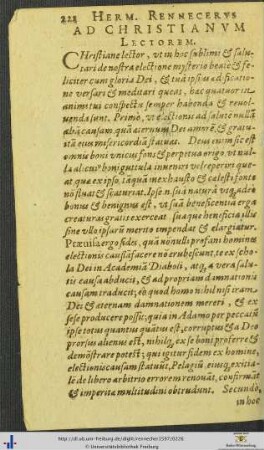 222 HERM. RENNECERVS
AD CHRISTIANVM
LECTOREM.
CHristiane lector, vt in hoc sublimi & salu-
tari de nostra electione mysterio beatè & fe-
liciter cum gloria Dei, & tuâ ipsius ædificatio-
ne versari & meditari queas, hæc quatuor in
animi tui conspectu semper habenda & reuol-
uenda sunt. Primò, vt electionis ad salutē nullā
aliā causam, quā æternum Dei amorē, & gratui-
tā eius misericordiā statuas. Deus enim sic est
omnis boni vnicus fons & perpetua origo, vt nul-
la alicui boni guttula inueniri vel reperiri que-
at quæ ex ipso, tāquā inexhausto & cœlesti fonte
nō fluat & scaturiat. Ipse n. suâ naturâ vsq, adeò
bonus & benignus est, vt suâ beneficentiâ erga
creaturas gratis exerceat suaque beneficia illis
sine vllo ipsarū merito impendat & elargiatur.
ergo fides, quâ nonnulli profani homines
electionis causā facere nō erubescunt, te ex scho-
la Dei in Academiā Diaboli, atq, à vera salu-
tis causa abducit, & ad propriam damnationis
causam traducit, eò quod homo nihil nisi iram
Dei & æternam damnationem mereri, & ex
sese producere possit, quia in Adamo per peccatū
ipse totus quantus quātus est, corruptus & à Deo
prorsus alienus est, nihilq, ex se boni præferre &
demōstrare potest: qui igitur fidem ex homine,
electionis causam statuit, Pelagiū eiusq, exitia-
lē de libero arbitrio errorem renouat, confirmat
& imperitæ multitudini obtrudunt. Secundò,
in hoc
http://dl.ub.uni-freiburg.de/diglit/rennecher1597/0226
© Universitätsbibliothek Freiburg